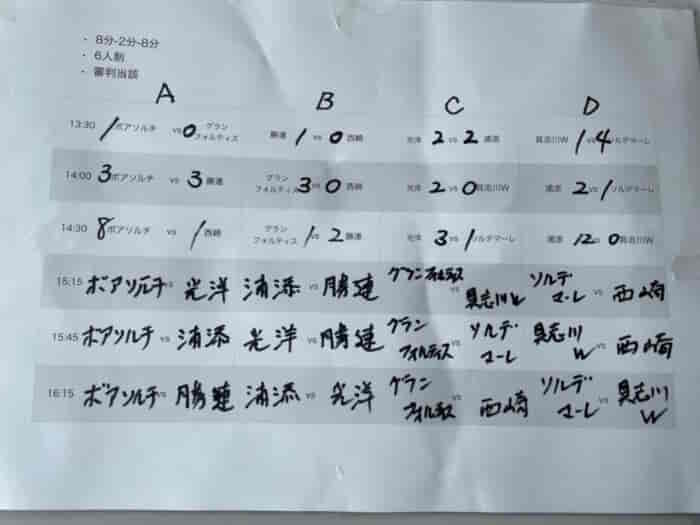 ・ 8分-2分-8分
・ 6人制
・ 審判当該
A B C D
13:30 1 ボアソルチ vs 0 グランフォルティス 勝連 1 vs 0 西崎 光洋 2 vs 2 浦添 具志川W 1 vs 4 ソルデマーレ
14:00 3 ボアソルチ vs 3 勝連 グランフォルティス 3 vs 0 西崎 光洋 2 vs 0 具志川W 浦添 2 vs 1 ソルデマーレ
14:30 8 ボアソルチ vs 1 西崎 グランフォルティス 1 vs 2 勝連 光洋 3 vs 1 ソルデマーレ 浦添 12 vs 0 具志川W
15:15 ボアソルチ vs 光洋 浦添 vs 勝連 グランフォルティス vs 具志川W ソルデマーレ vs 西崎
15:45 ボアソルチ vs 浦添 光洋 vs 勝連 グランフォルティス vs ソルデマーレ 具志川W vs 西崎
16:15 ボアソルチ vs 勝連 浦添 vs 光洋 グランフォルティス vs 西崎 ソルデマーレ vs 具志川W